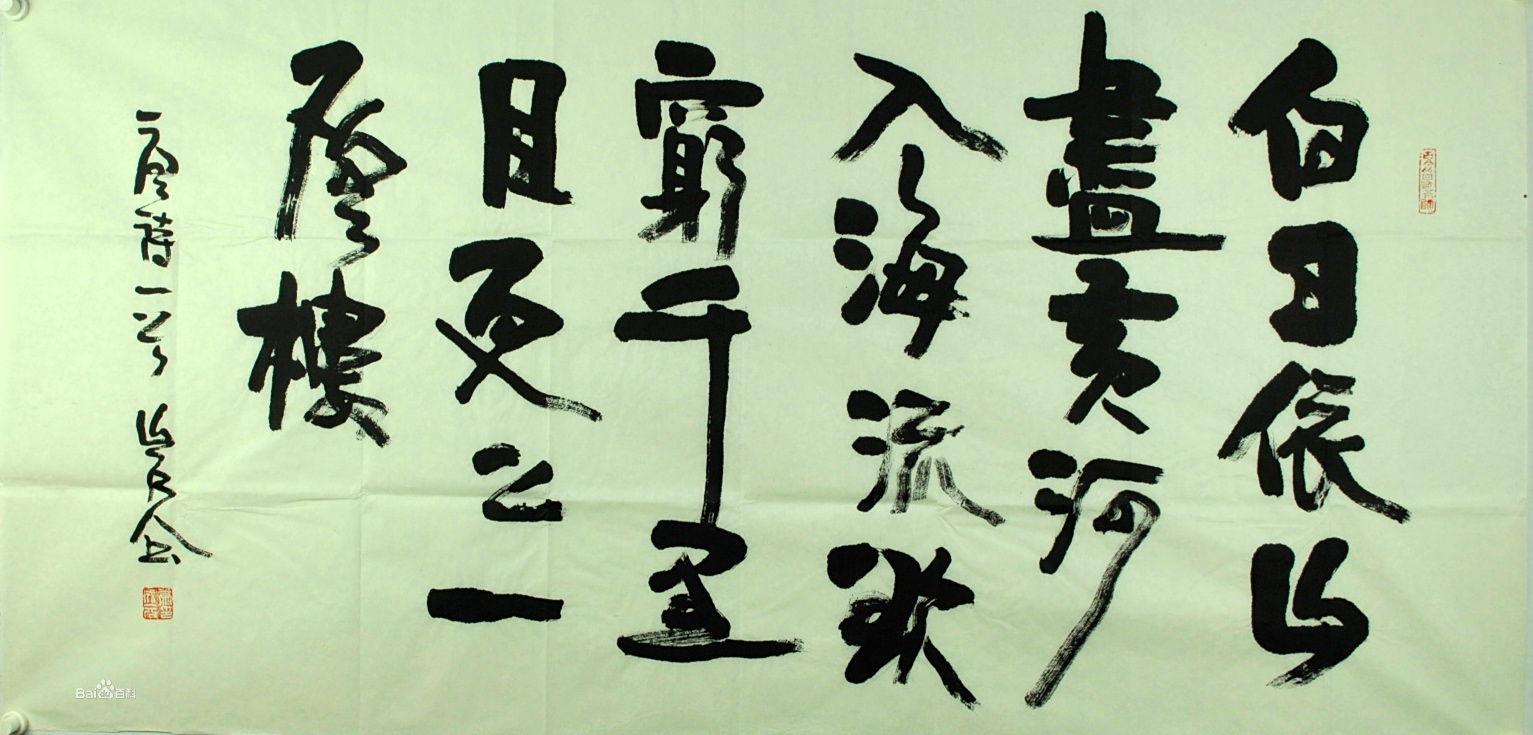 白日依山
盡黄河
入海流欲
窮千里
目更上一
層樓
唐詩一首
Baidu百科